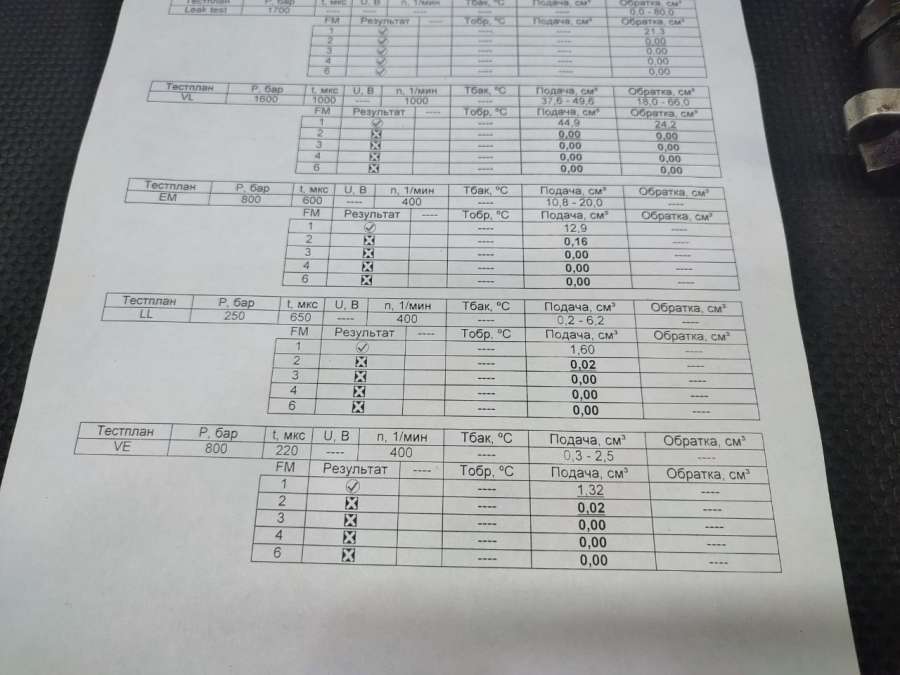 Тестплан P, бар t, мкс U, В n, 1/мин Тбак, ºC Подача, см³ Обратка, см³
Leak test 1700 ---- ---- ---- ---- ---- 0,0 - 80,0
FM Результат ---- Тобр, ºC Подача, см³ Обратка, см³
1 ---- ---- 21,3
2 ---- ---- 0,00
3 ---- ---- 0,00
4 ---- ---- 0,00
6 ---- ---- 0,00
Тестплан P, бар t, мкс U, В n, 1/мин Тбак, ºC Подача, см³ Обратка, см³
VL 1600 1000 ---- 1000 ---- 37,6 - 49,6 18,0 - 66,0
FM Результат ---- Тобр, ºC Подача, см³ Обратка, см³
1 ---- 44,9 24,2
2 ---- 0,00 0,00
3 ---- 0,00 0,00
4 ---- 0,00 0,00
6 ---- 0,00 0,00
Тестплан P, бар t, мкс U, В n, 1/мин Тбак, ºC Подача, см³ Обратка, см³
EM 800 600 ---- 400 ---- 10,8 - 20,0 ----
FM Результат ---- Тобр, ºC Подача, см³ Обратка, см³
1 ---- 12,9 ----
2 ---- 0,16 ----
3 ---- 0,00 ----
4 ---- 0,00 ----
6 ---- 0,00 ----
Тестплан P, бар t, мкс U, В n, 1/мин Тбак, ºC Подача, см³ Обратка, см³
LL 250 650 ---- 400 ---- 0,2 - 6,2 ----
FM Результат ---- Тобр, ºC Подача, см³ Обратка, см³
1 ---- 1,60 ----
2 ---- 0,02 ----
3 ---- 0,00 ----
4 ---- 0,00 ----
6 ---- 0,00 ----
Тестплан P, бар t, мкс U, В n, 1/мин Тбак, ºC Подача, см³ Обратка, см³
VE 800 220 ---- 400 ---- 0,3 - 2,5 ----
FM Результат ---- Тобр, ºC Подача, см³ Обратка, см³
1 ---- 1,32 ----
2 ---- 0,02 ----
3 ---- 0,00 ----
4 ---- 0,00 ----
6 ---- 0,00 ----